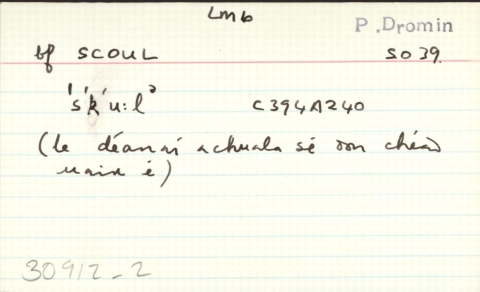 Lmb
P. Dromin
bf SCOUL SO 39.
's'k'u:lə C394A240
(le déanaí a chuala sé don chéad
uair é)
30912-2